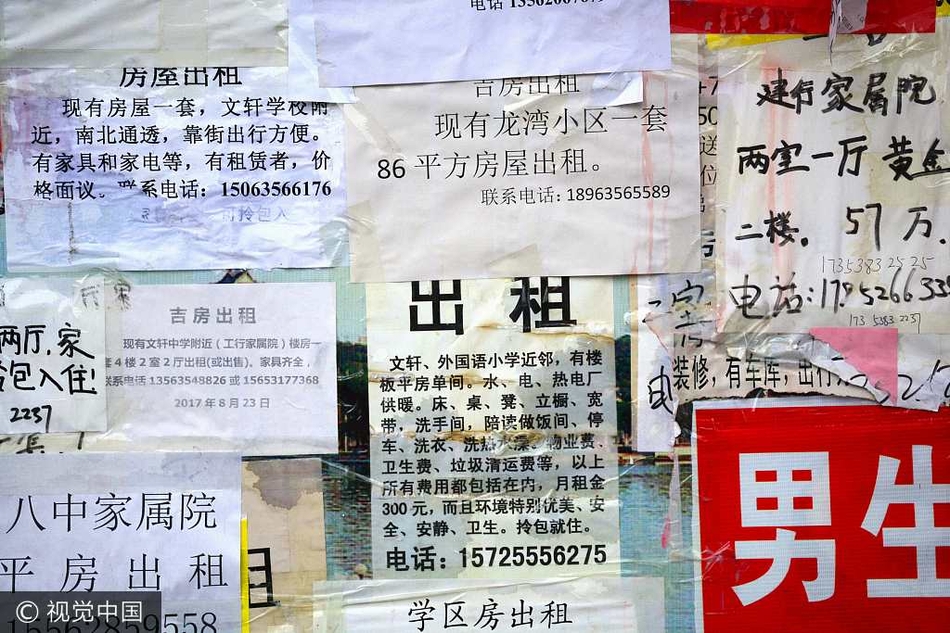 房屋出租
现有房屋一套，文轩学校附
近，南北通透，靠街出行方便。
有家具和家电等，有租赁者，价
格面议。 联系电话：15063563176
吉房出租
现有龙湾小区一套
86 平方房屋出租。
联系电话：18963565589
建行家属院
两室一厅 黄金
二楼。57万.
1735383 25 25
电话:
173 5383 2237
装修，有车库，出行
两厅,家
包入住!
2237
吉房出租
现有文轩中学附近（工行家属院）楼房一
套 4 楼 2 室 2 厅出租(或出售)。家具齐全，
联系电话 13563548826 或 15653177368
2017 年 8 月 23 日
出 租
文轩、外国语小学近邻，有楼
板平房单间。水、电、热电厂
供暖。床、桌、凳、立橱、宽
带，洗手间，陪读做饭间、停
车、洗衣、洗热水澡。物业费、
卫生费、垃圾清运费等，以上
所有费用都包括在内，月租金
300 元，而且环境特别优美、安
全、安静、卫生。拎包就住。
电话：15725556275
八中家属院
平 房 出 租
学区房出租
男生
© 视觉中国